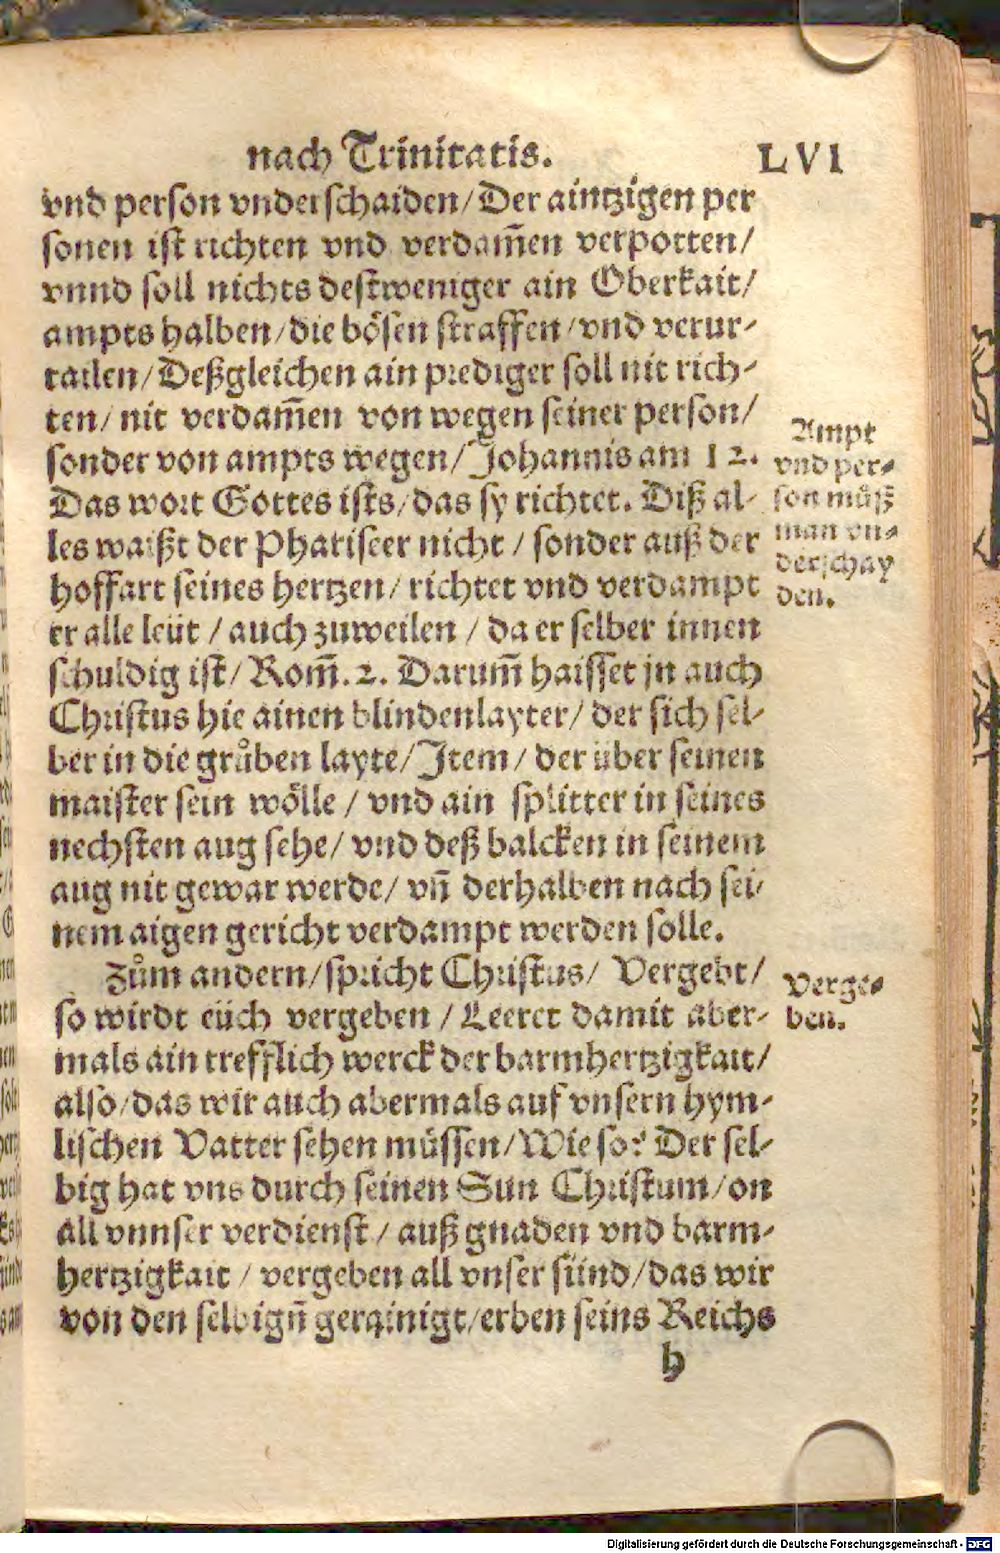 nach Trinitatis. LVI
vnd person vnderschaiden/ Der aintzigen per
sonen ist richten vnd verdam̄en verpotten/
vnnd soll nichts destweniger ain Oberkait/
ampts halben/ die bösen straffen/ vnd verur-
tailen/ Deßgleichen ain prediger soll nit rich-
ten/ nit verdam̄en von wegen seiner person/
sonder von ampts wegen/ Johannis am 12.
Das wort Gottes ists/ das sy richtet. Diß al-
les waißt der Phariseer nicht / sonder auß der
hoffart seines hertzen/ richtet vnd verdampt
er alle leüt / auch zuweilen / da er selber innen
schuldig ist/ Rom̄. 2. Darum̄ haisset jn auch
Christus hie ainen blindenlayter/ der sich sel-
ber in die grůben layte/ Item/ der über seinen
maister sein wölle / vnd ain splitter in seines
nechsten aug sehe/ vnd deß balcken in seinem
aug nit gewar werde/ vn̄ derhalben nach sei-
nem aigen gericht verdampt werden solle.
Zům andern/ spricht Christus/ Vergebt/
so wirdt eüch vergeben / Leeret damit aber-
mals ain trefflich werck der barmhertzigkait/
also/ das wir auch abermals auf vnsern hym-
lischen Vatter sehen müssen/ Wie so? Der sel-
big hat vns durch seinen Sun Christum/ on
all vnnser verdienst / auß gnaden vnd barm-
hertzigkait / vergeben all vnser sünd/ das wir
von den selbign̄ gerainigt/ erben seins Reichs
h
Ampt
vnd per-
son můß
man vn-
derschay
den.
Verge-
ben.
Digitalisierung gefördert durch die Deutsche Forschungsgemeinschaft - DFG